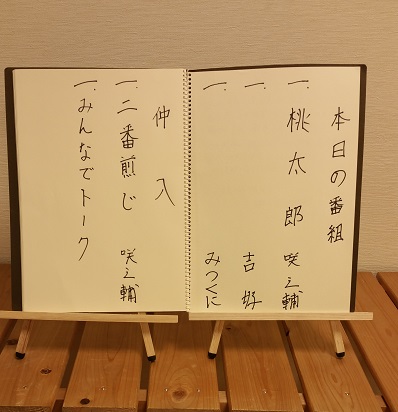 本日の番組
一. 桃太郎 咲之輔
一. 吉好
一. みつくに
仲入
一. 二番煎じ 咲之輔
一. みんなでトーク